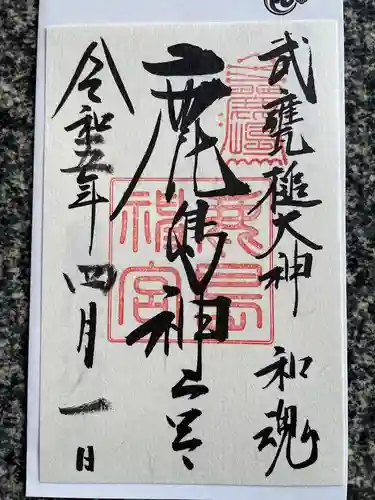 武甕槌大神 和魂
鹿島神宮
令和五年 四月 一日
鹿島神宮